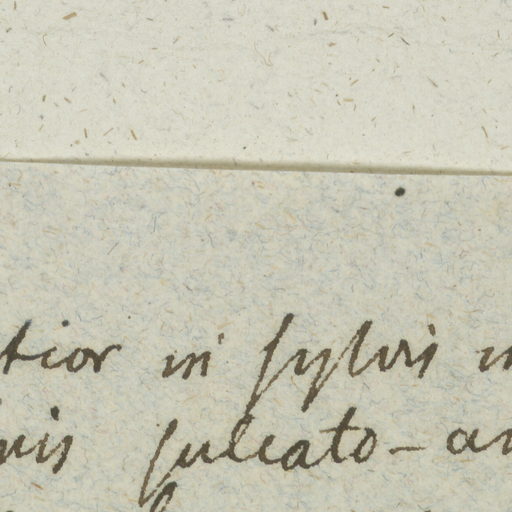 tior in sylvis in
nis sulcato-an